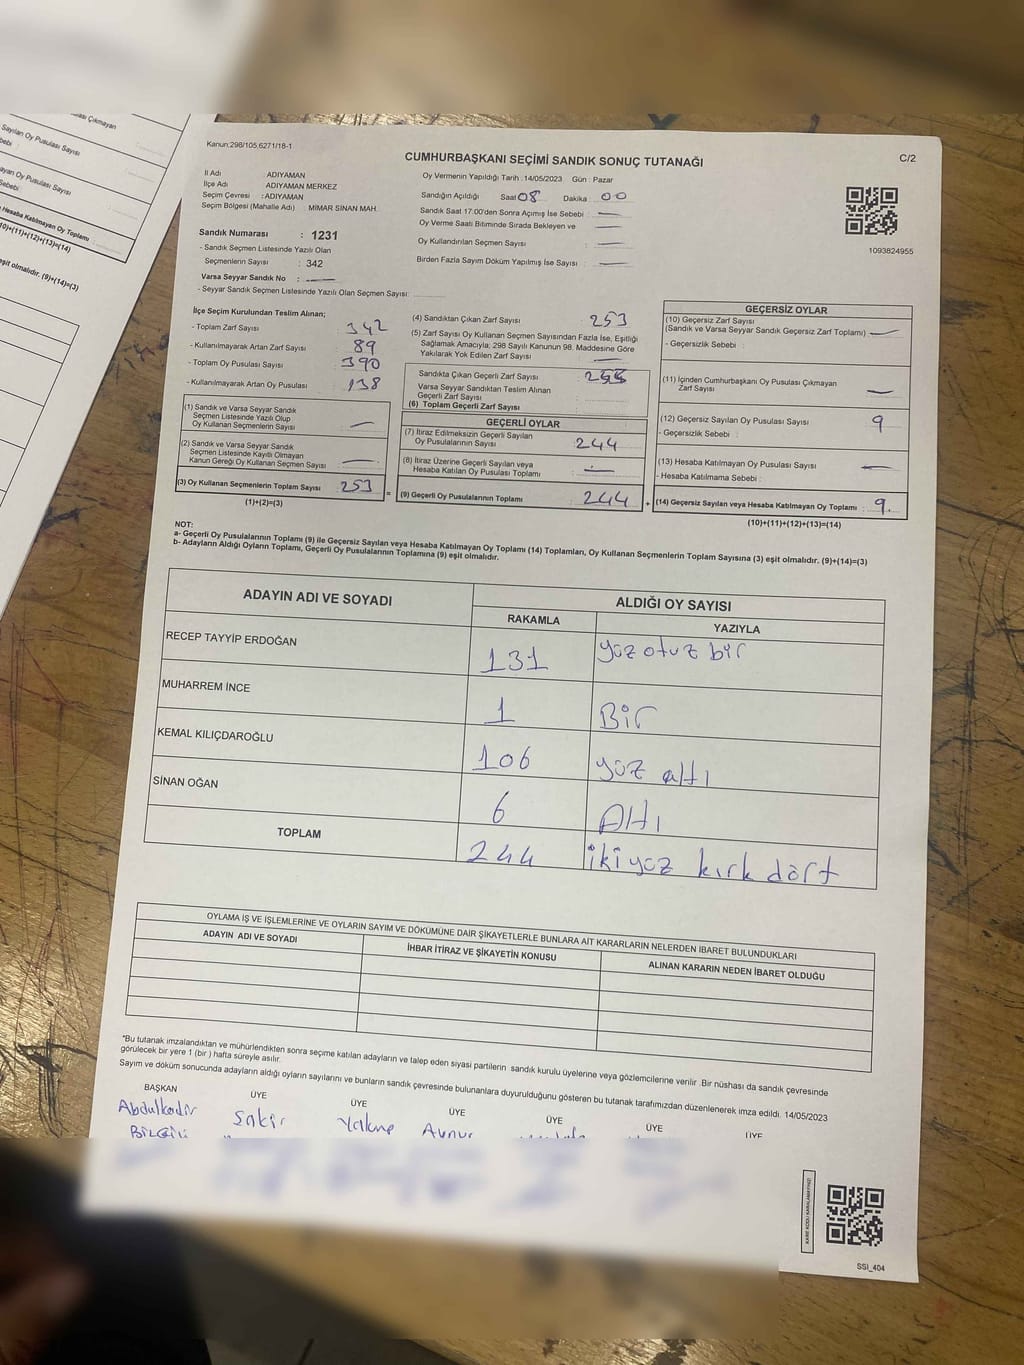 ası Çıkmayan
Sayılan Oy Pusulası Sayısı
bebi :
ayan Oy Pusulası Sayısı
Sebebi :
Hesaba Katılmayan Oy Toplamı :
10)+(11)+(12)+(13)=(14)
eşit olmalıdır. (9)+(14)=(3)
Kanun:298/105,6271/18-1
C/2
CUMHURBAŞKANI SEÇİMİ SANDIK SONUÇ TUTANAĞI
İl Adı ADIYAMAN
İlçe Adı ADIYAMAN MERKEZ
Seçim Çevresi : ADIYAMAN
Seçim Bölgesi (Mahalle Adı) : MİMAR SİNAN MAH.
Sandık Numarası : 1231
- Sandık Seçmen Listesinde Yazılı Olan
Seçmenlerin Sayısı : 342
Varsa Seyyar Sandık No : —
- Seyyar Sandık Seçmen Listesinde Yazılı Olan Seçmen Sayısı:
Oy Vermenin Yapıldığı Tarih : 14/05/2023 Gün : Pazar
Sandığın Açıldığı Saat 08 Dakika 00
Sandık Saat 17:00'den Sonra Açımış İse Sebebi : —
Oy Verme Saati Bitiminde Sırada Bekleyen ve
Oy Kullandırılan Seçmen Sayısı : —
Birden Fazla Sayım Döküm Yapılmış İse Sayısı : —
1093824955
İlçe Seçim Kurulundan Teslim Alınan;
- Toplam Zarf Sayısı : 342
- Kullanılmayarak Artan Zarf Sayısı : 89
- Toplam Oy Pusulası Sayısı : 390
- Kullanılmayarak Artan Oy Pusulası : 138
(1) Sandık ve Varsa Seyyar Sandık
Seçmen Listesinde Yazılı Olup
Oy Kullanan Seçmenlerin Sayısı : —
(2) Sandık ve Varsa Seyyar Sandık
Seçmen Listesinde Kayıtlı Olmayan
Kanun Gereği Oy Kullanan Seçmen Sayısı : —
(3) Oy Kullanan Seçmenlerin Toplam Sayısı : 253
(1)+(2)=(3)
(4) Sandıktan Çıkan Zarf Sayısı : 253
(5) Zarf Sayısı Oy Kullanan Seçmen Sayısından Fazla İse, Eşitliği
Sağlamak Amacıyla; 298 Sayılı Kanunun 98. Maddesine Göre
Yakılarak Yok Edilen Zarf Sayısı : —
Sandıkta Çıkan Geçerli Zarf Sayısı :
Varsa Seyyar Sandıktan Teslim Alınan
Geçerli Zarf Sayısı :
(6) Toplam Geçerli Zarf Sayısı :
GEÇERLİ OYLAR
(7) İtiraz Edilmeksizin Geçerli Sayılan
Oy Pusulalarının Sayısı : 244
(8) İtiraz Üzerine Geçerli Sayılan veya
Hesaba Katılan Oy Pusulası Toplamı : —
= (9) Geçerli Oy Pusulalarının Toplamı : 244
GEÇERSİZ OYLAR
(10) Geçersiz Zarf Sayısı
(Sandık ve Varsa Seyyar Sandık Geçersiz Zarf Toplamı) : —
- Geçersizlik Sebebi :
(11) İçinden Cumhurbaşkanı Oy Pusulası Çıkmayan
Zarf Sayısı : —
(12) Geçersiz Sayılan Oy Pusulası Sayısı : 9
- Geçersizlik Sebebi :
(13) Hesaba Katılmayan Oy Pusulası Sayısı : —
- Hesaba Katılmama Sebebi :
+ (14) Geçersiz Sayılan veya Hesaba Katılmayan Oy Toplamı : 9.
(10)+(11)+(12)+(13)=(14)
NOT:
a- Geçerli Oy Pusulalarının Toplamı (9) ile Geçersiz Sayılan veya Hesaba Katılmayan Oy Toplamı (14) Toplamları, Oy Kullanan Seçmenlerin Toplam Sayısına (3) eşit olmalıdır. (9)+(14)=(3)
b- Adayların Aldığı Oyların Toplamı, Geçerli Oy Pusulalarının Toplamına (9) eşit olmalıdır.
ADAYIN ADI VE SOYADI
ALDIĞI OY SAYISI
RAKAMLA
YAZIYLA
RECEP TAYYİP ERDOĞAN 131 yüz otuz bir
MUHARREM İNCE 1 Bir
KEMAL KILIÇDAROĞLU 106 yüz altı
SİNAN OĞAN 6 Altı
TOPLAM 244 ikiyüz kırk dört
OYLAMA İŞ VE İŞLEMLERİNE VE OYLARIN SAYIM VE DÖKÜMÜNE DAİR ŞİKAYETLERLE BUNLARA AİT KARARLARIN NELERDEN İBARET BULUNDUKLARI
ADAYIN ADI VE SOYADI
İHBAR İTİRAZ VE ŞİKAYETİN KONUSU
ALINAN KARARIN NEDEN İBARET OLDUĞU
*Bu tutanak imzalandıktan ve mühürlendikten sonra seçime katılan adayların ve talep eden siyasi partilerin sandık kurulu üyelerine veya gözlemcilerine verilir. Bir nüshası da sandık çevresinde
görülecek bir yere 1 (bir) hafta süreyle asılır.
Sayım ve döküm sonucunda adayların aldığı oyların sayılarını ve bunların sandık çevresinde bulunanlara duyurulduğunu gösteren bu tutanak tarafımızdan düzenlenerek imza edildi. 14/05/2023
BAŞKAN ÜYE ÜYE ÜYE ÜYE ÜYE ÜYE
Abdulkadir Şakir Aynur
BİLGİLİ
KARE KODU KARALAMAYINIZ!
SSI_404